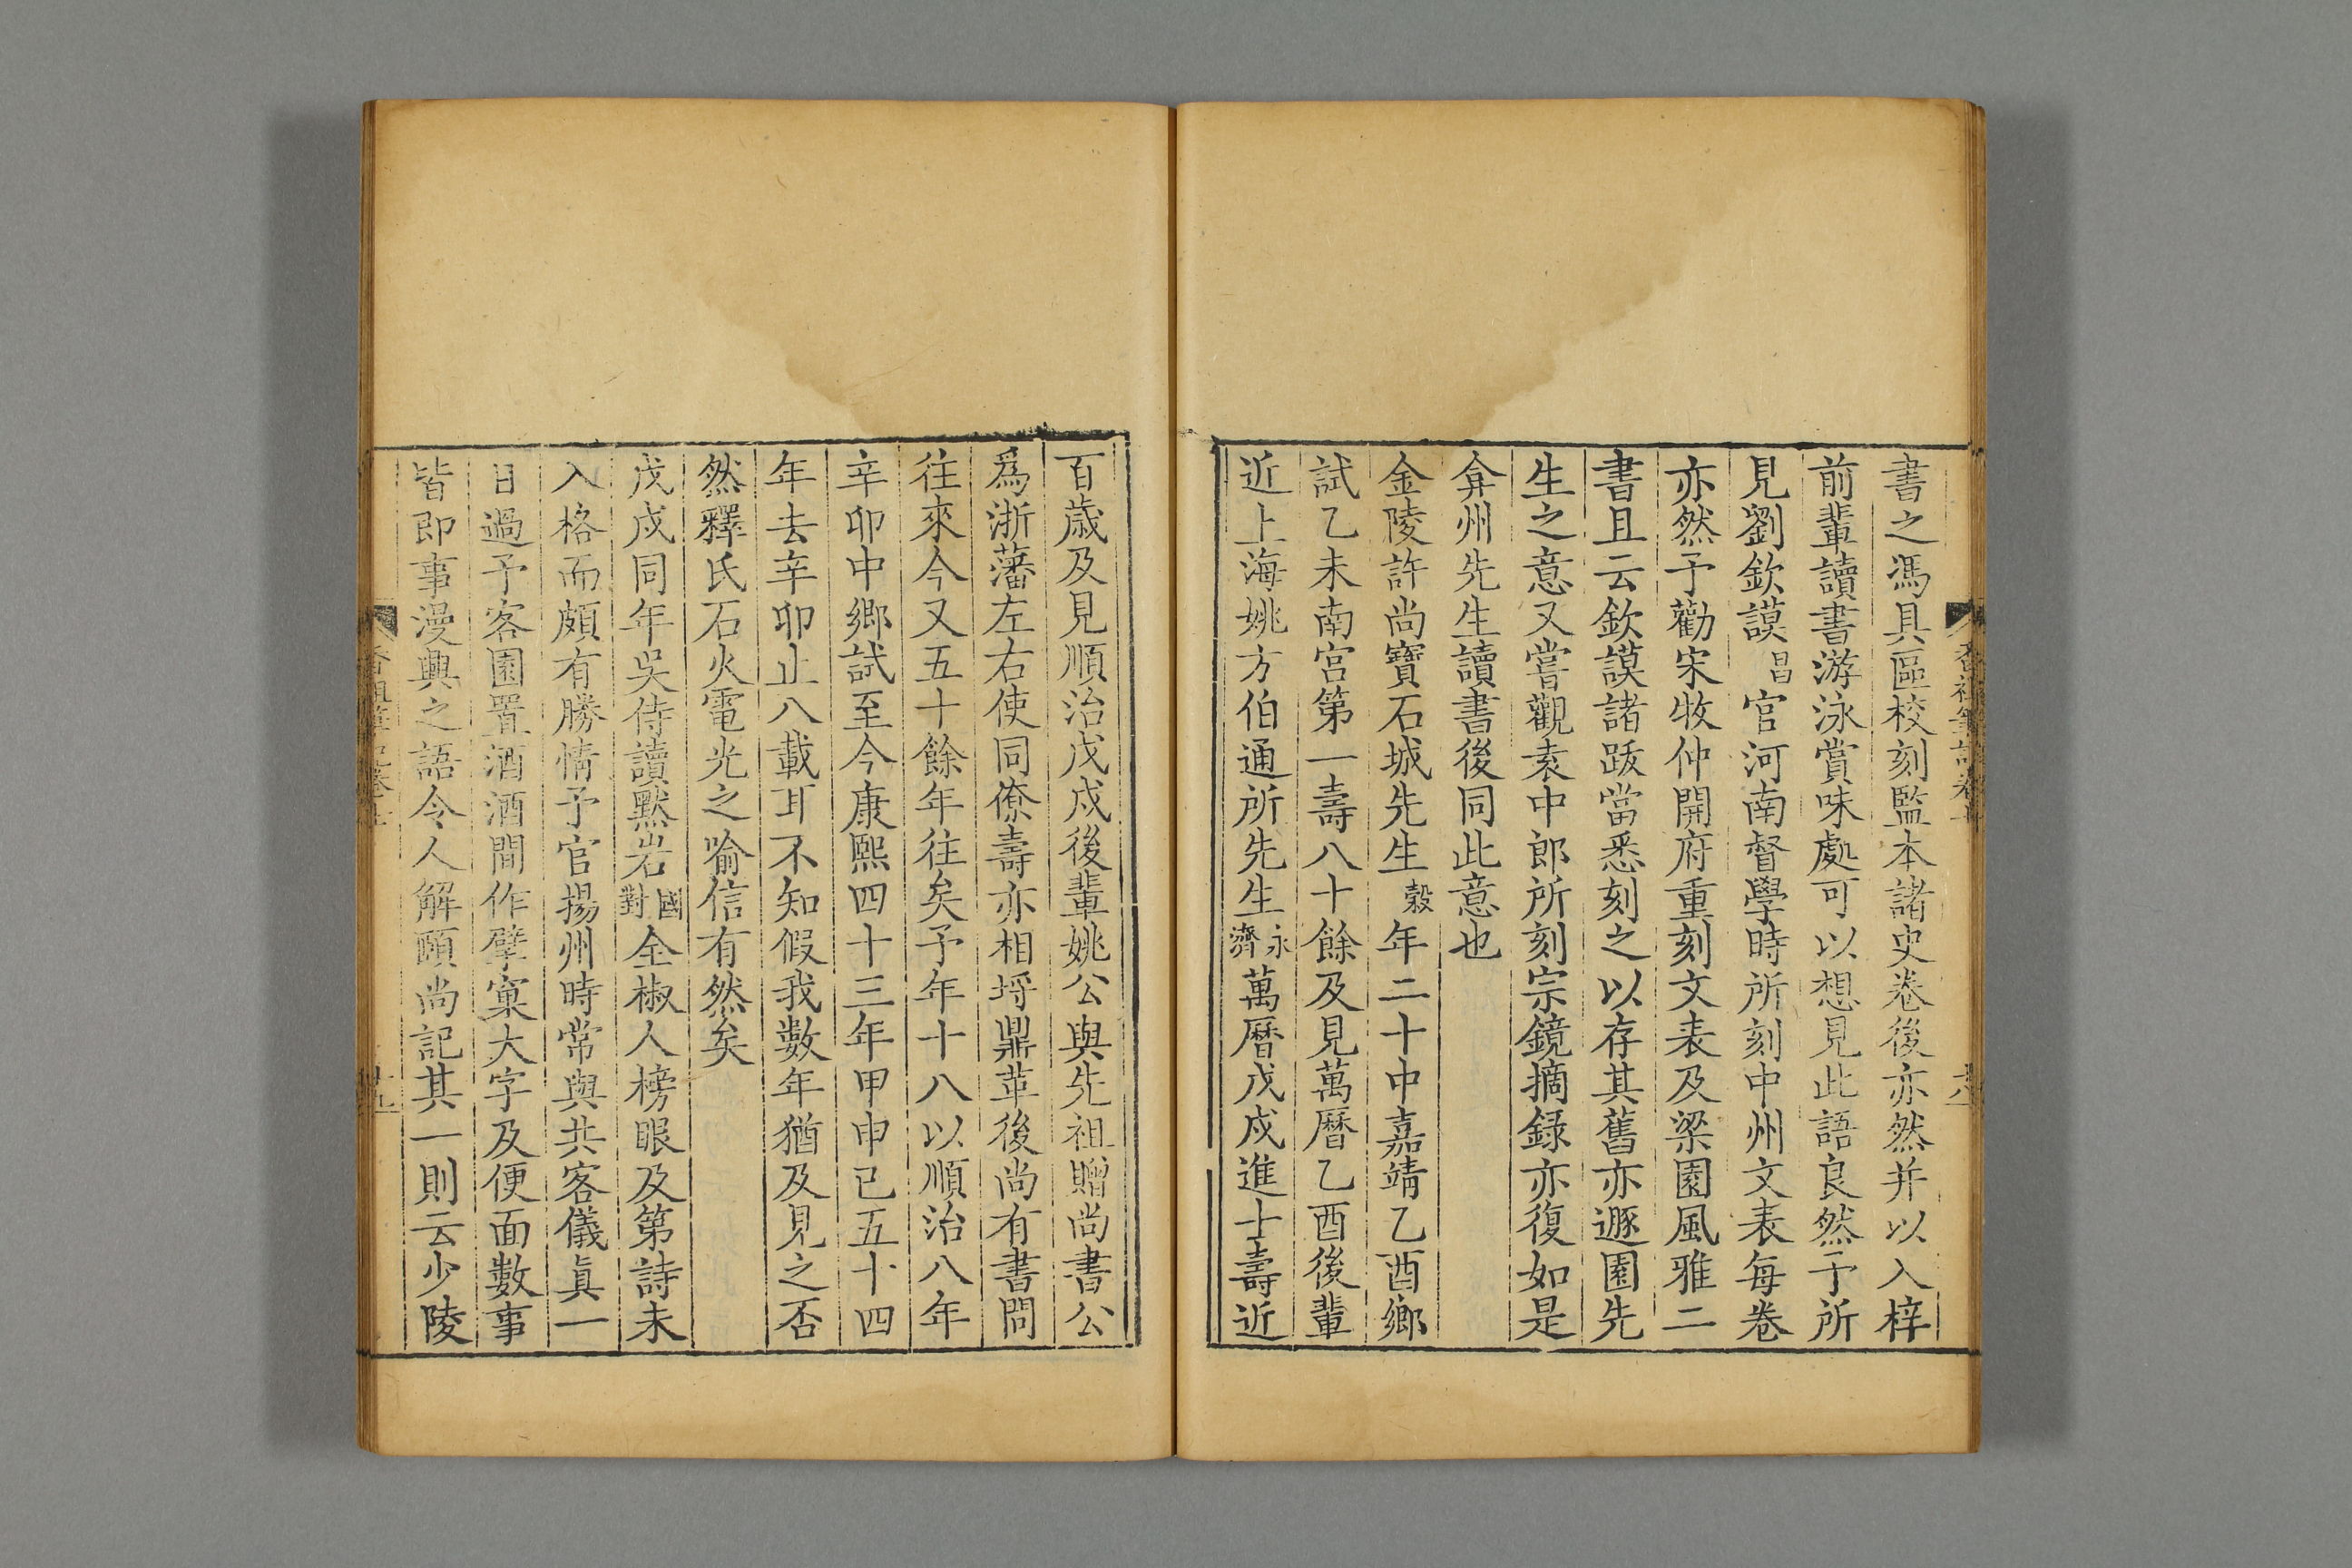 書之馮具區校刻監本諸史卷後亦然并以入梓
前輩讀書游泳賞味處可以想見此語良然予所
見劉欽謨昌官河南督學時所刻中州文表每卷
亦然予勸宋牧仲開府重刻文表及梁園風雅二
書且云欽謨諸跋當悉刻之以存其舊亦遯園先
生之意又嘗觀袁中郎所刻宗鏡摘録亦復如是
弇州先生讀書後同此意也
金陵許尚寶石城先生穀年二十中嘉靖乙酉鄉
試乙未南宫第一壽八十餘及見萬曆乙酉後輩
近上海姚方伯通所先生永濟萬曆戊戌進士壽近
百歲及見順治戊戌後輩姚公與先祖贈尚書公
爲浙藩左右使同僚壽亦相埒鼎革後尚有書問
往來今又五十餘年往矣予年十八以順治八年
辛卯中鄉試至今康熙四十三年甲申已五十四
年去辛卯止八載耳不知假我數年猶及見之否
然釋氏石火電光之喻信有然矣
戊戌同年吳侍讀默岩國對全椒人榜眼及第詩未
入格而頗有勝情予官揚州時常與共客儀眞一
日過予客園置酒酒間作擘窠大字及便面數事
皆即事漫興之語令人解頤尚記其一則云少陵